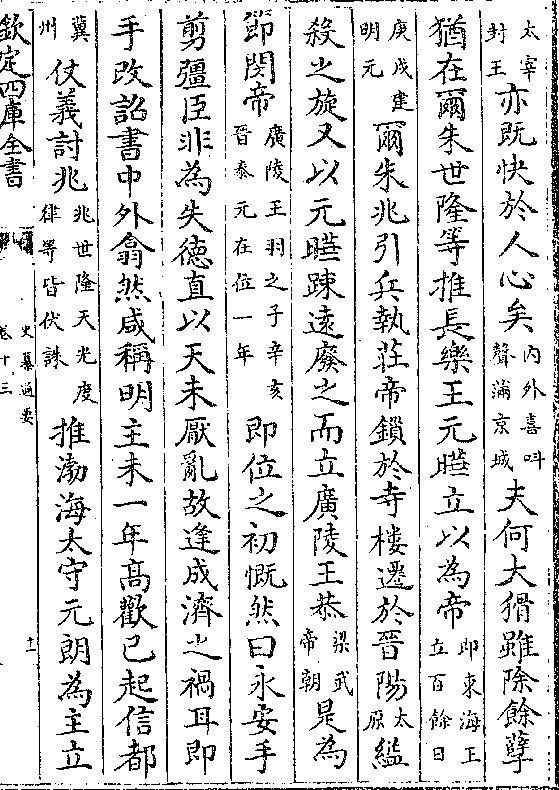 太宰封王亦既快於人心矣内外喜呌聲滿京城夫何大猾雖除餘孽
猶在爾朱世隆等推長樂王元曄立以為帝即東海王立百餘日
庚戌建明元爾朱兆引兵執莊帝鎖於寺樓遷於晉陽太原縊
殺之旋又以元曄踈逺廢之而立廣陵王恭梁武帝朝是為
節閔帝廣陵王羽之子辛亥晉泰元在位一年即位之初慨然曰永安手
剪彊臣非為失德直以天未厭亂故逢成濟之禍耳即
手改詔書中外翕然咸稱明主未一年髙歡已起信都
冀州仗義討兆兆世隆天光度律等皆伏誅推渤海太守元朗為主立
欽定四庫全書
史纂通要
卷十三
十一